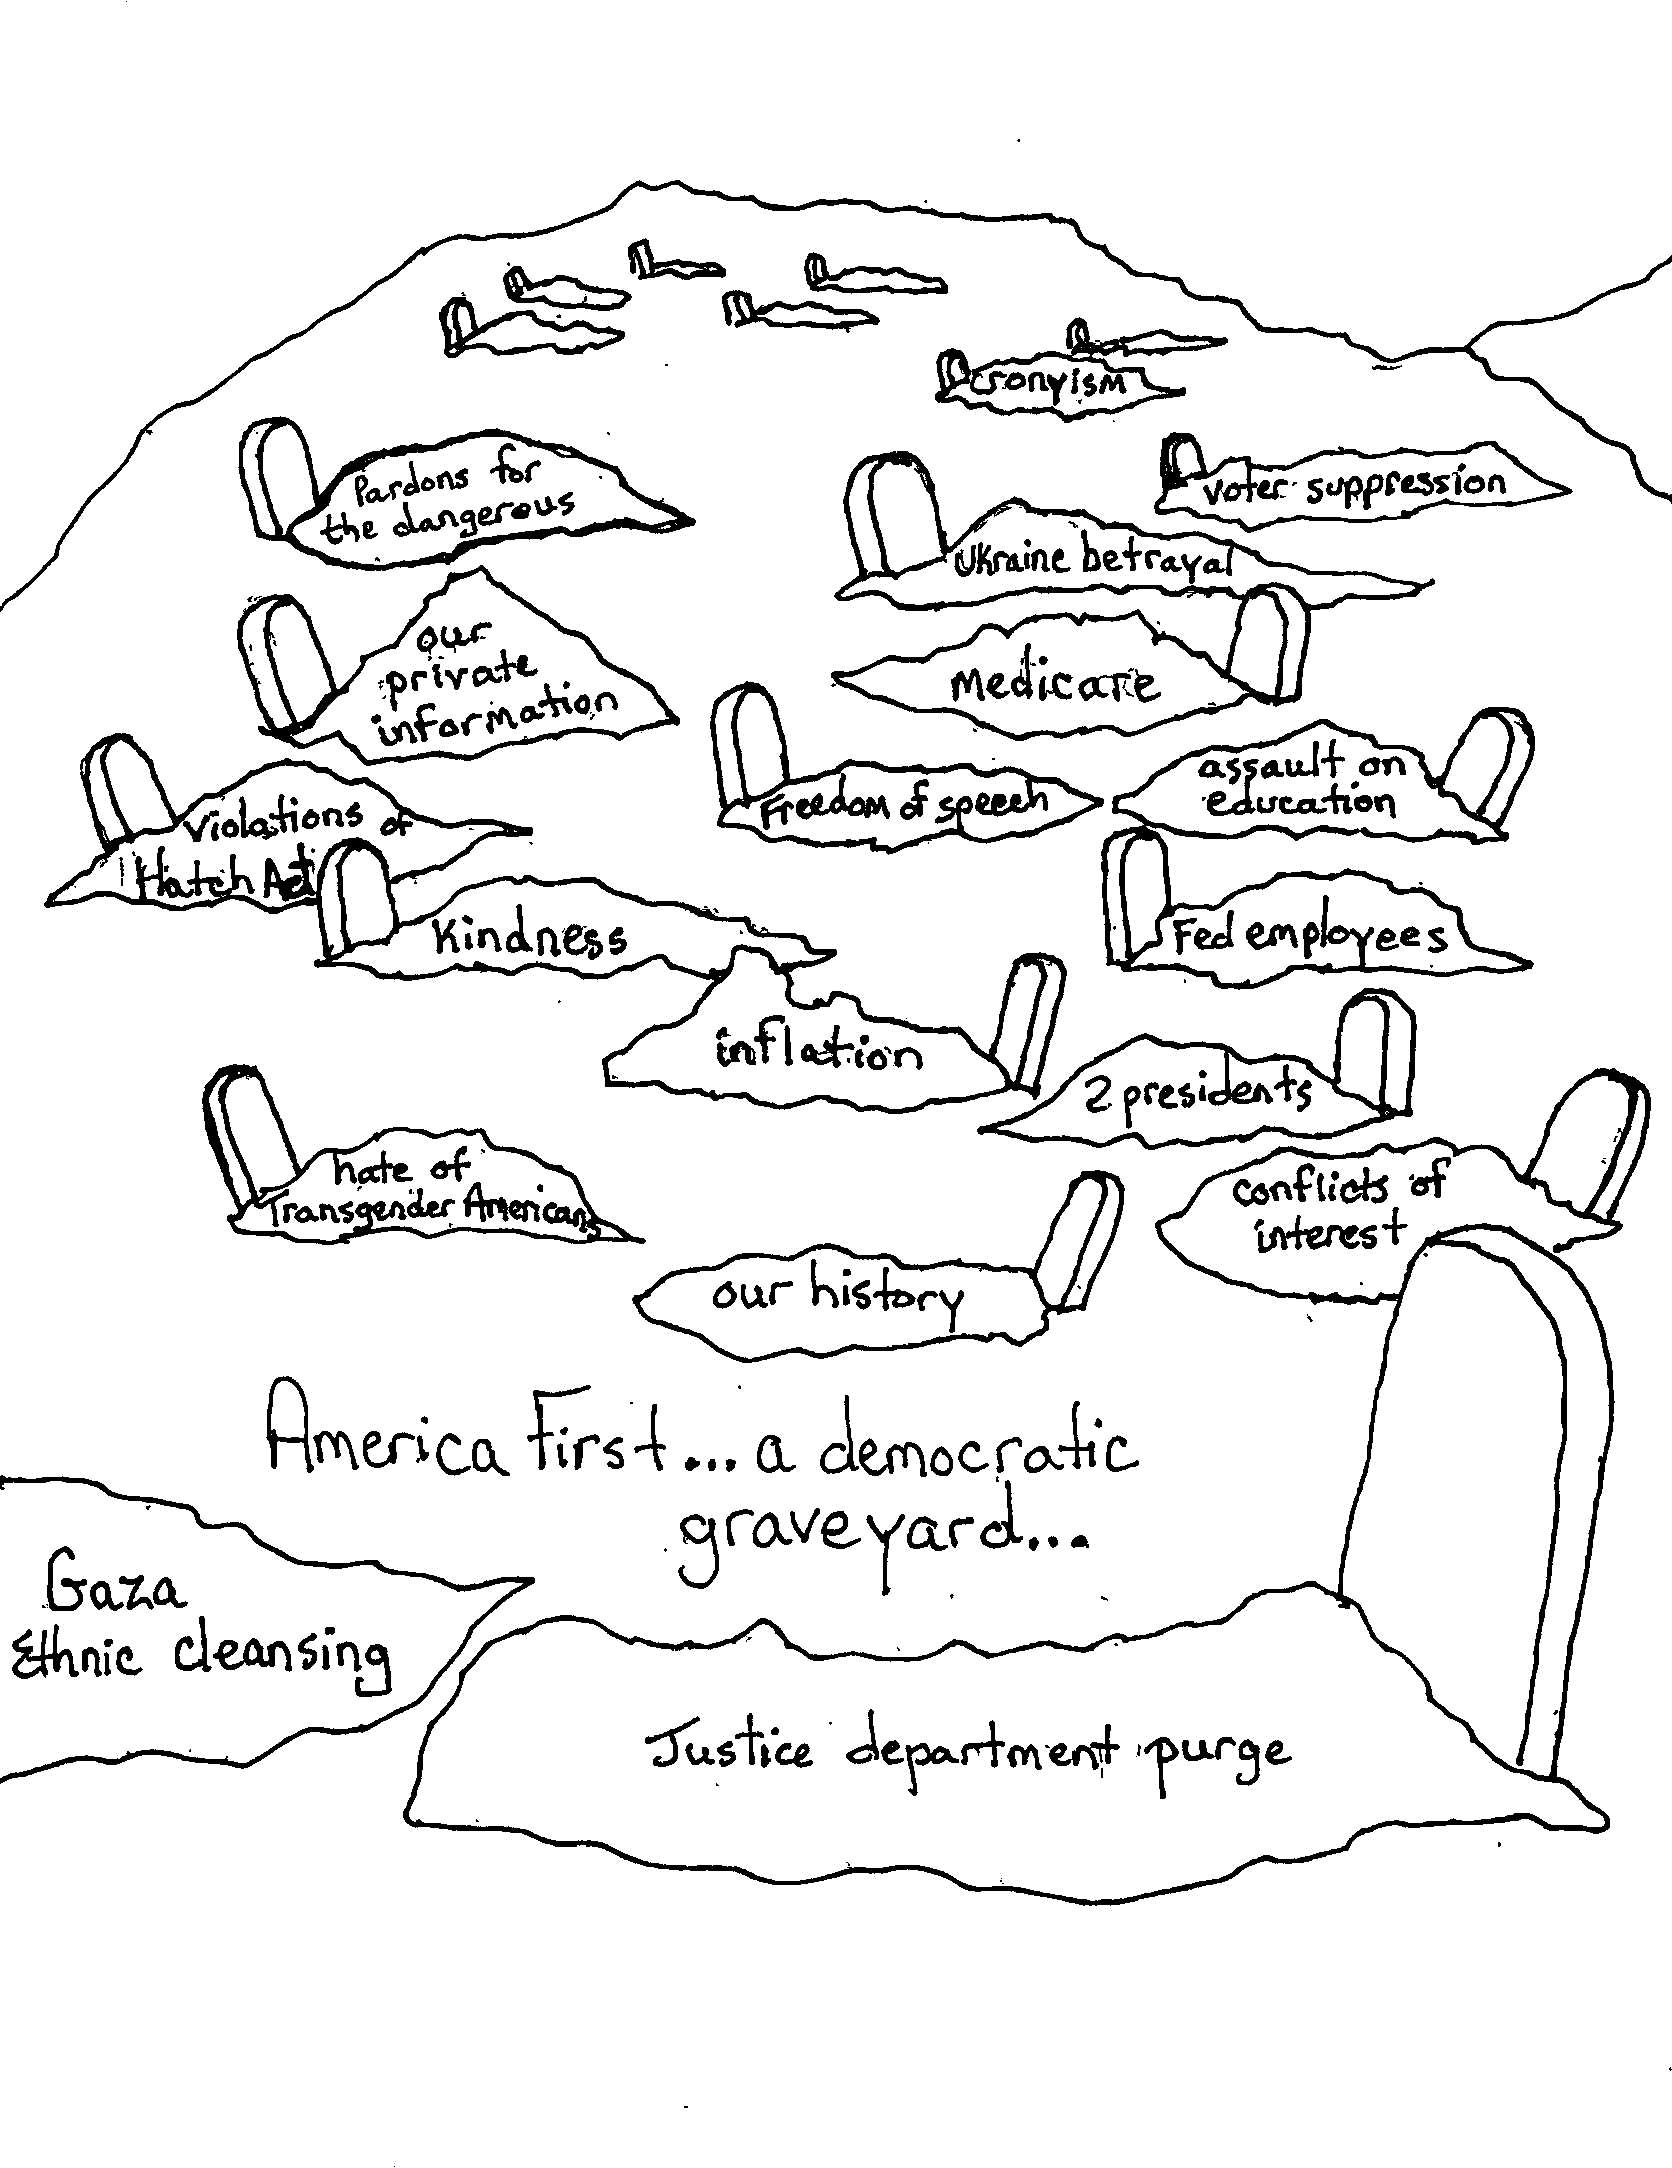 cronyism
Pardons for
the dangerous
voter suppression
Ukraine betrayal
our
private
information
medicare
Violations of
Hatch Act
Freedom of speech
assault on
education
Kindness
Fed employees
inflation
2 presidents
hate of
Transgender Americans
conflicts of
interest
our history
America First... a democratic
graveyard...
Gaza
Ethnic cleansing
Justice department purge